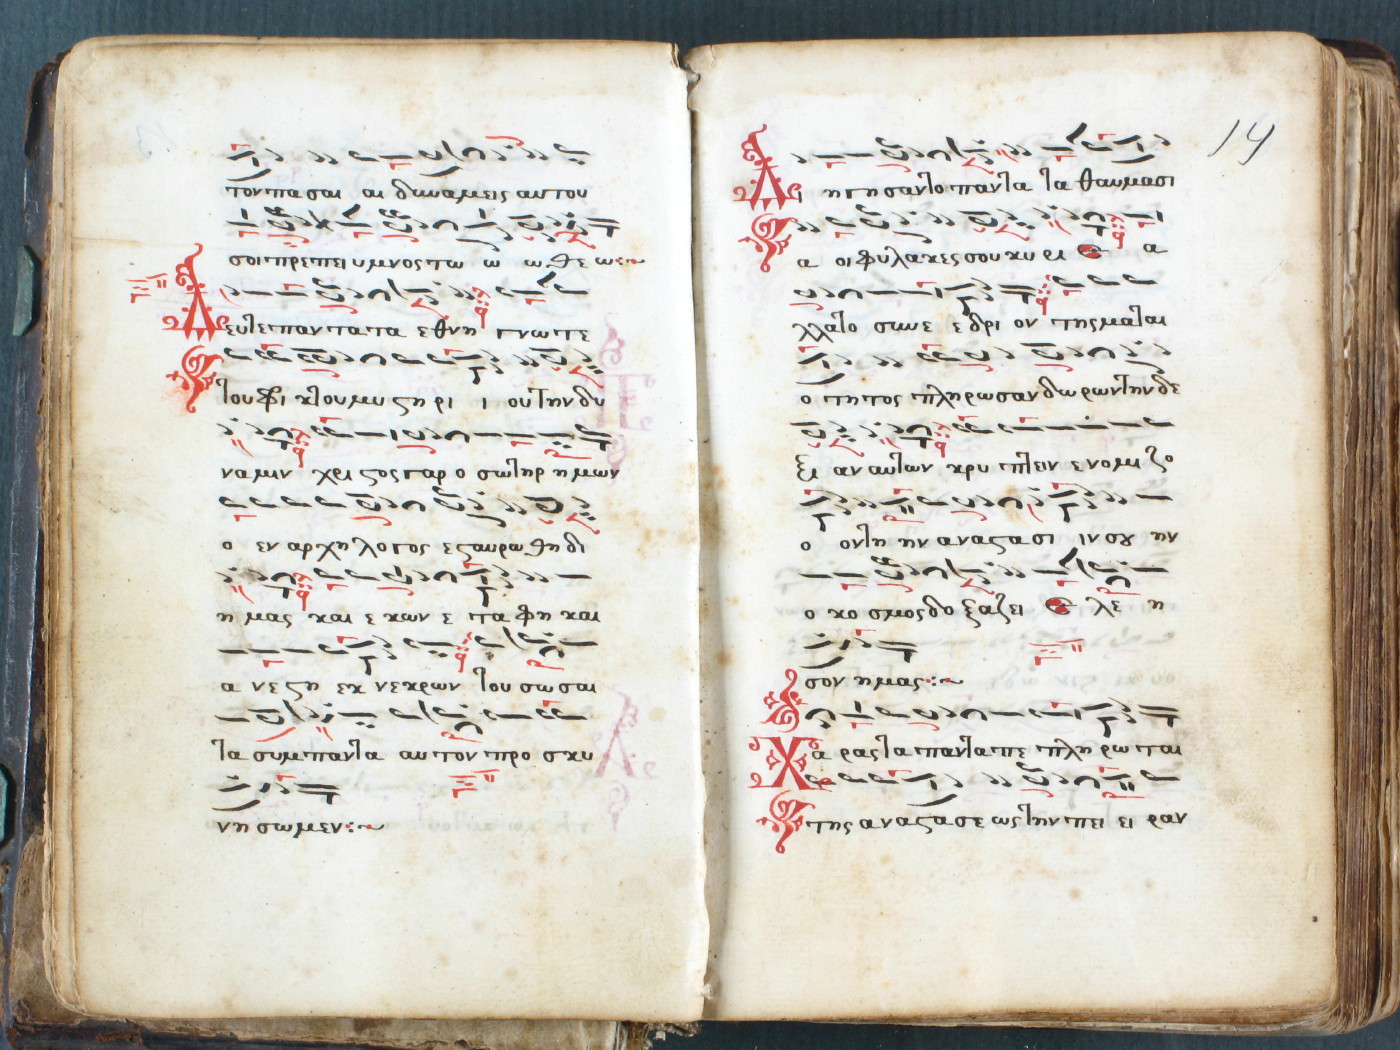 τον πα σαι αι δυνα μεις αυτου
σοι πρεπει υ μνος τω ω ω θε ω
Δευτε παντα τα ε θνη γνω τε
του φρι κτου μυ ϛη ρι ι ου την δυ
να μιν χρι ϛος γαρ ο σωτηρ η μων
ο εν αρ χη λογος εϛαυρω θη δι
η μας και ε κων ε τα φη και
α νε ϛη εκ νεκρων του σω σαι
τα συμπαντα αυ τον προ σκυ
νη σωμεν
14
Δι η γη σαντο παντα τα θαυμασι
α οι φυλακες σου κυ ρι ε α
λλα το συνε ε δρι ον της μα ται
ο τη τος πλη ρωσαν δω ρων την δε
ξι αν αυτων κρυ πτειν ε νομι ζο
ο ον τη ην αναϛα σι ιν σου ην
ο κο σμος δο ξαζει ε λε η
σον ημας
Χα ρας τα παντα πε πλη ρω ται
της α ναϛασε ως την πει ει ραν